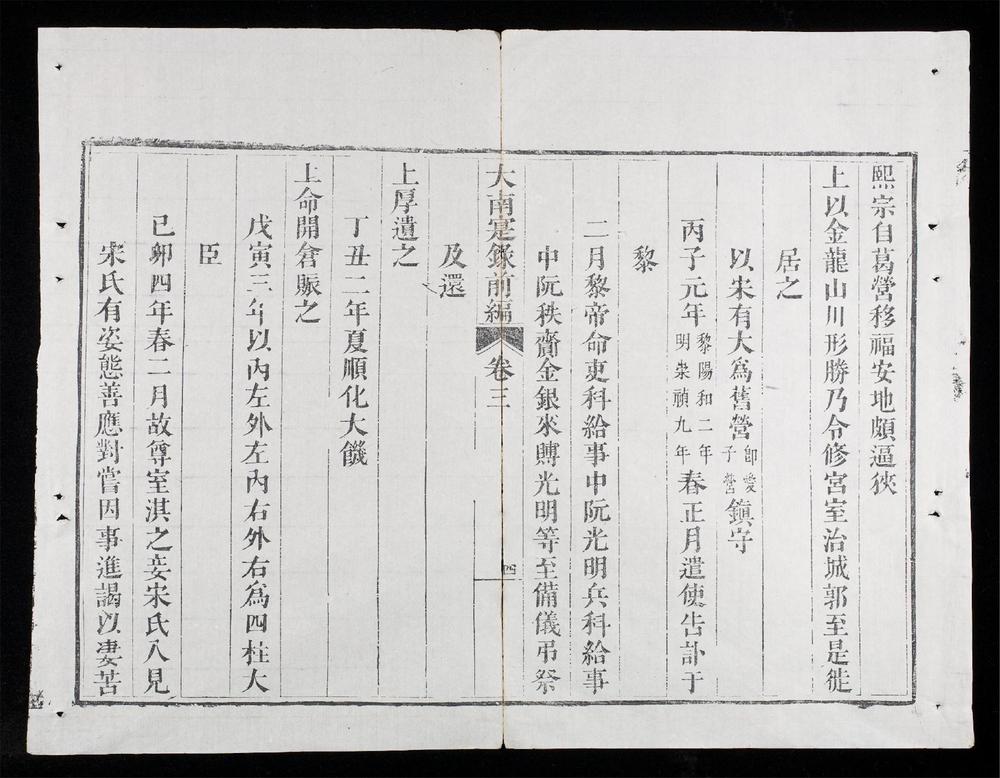 熙宗自葛營移福安地頗逼狹
上以金龍山川形勝乃令修宮室治城郭至是徙
居之
以宋有大爲舊營即愛子營鎮守
丙子元年黎陽和二年明崇禎九年春正月遣使告訃于
黎
二月黎帝命吏科給事中阮光明兵科給事
中阮秩齎金銀來賻光明等至備儀弔祭
大南寔錄前編 卷三 四
及還
上厚遺之
丁丑二年夏順化大饑
上命開倉賑之
戊寅三年以內左外左內右外右爲四柱大
臣
己卯四年春二月故尊室淇之妾宋氏入見
宋氏有姿態善應對嘗因事進謁以凄苦